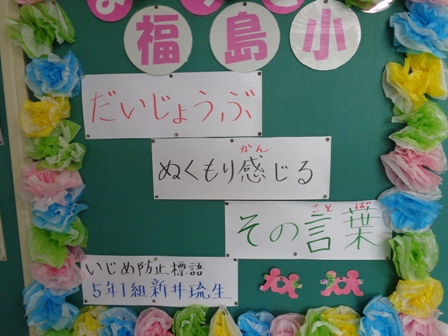 福島小
だいじょうぶ
かん
ぬくもり感じる
ことば
その言葉
いじめ防止標語
5年1組新井琉生